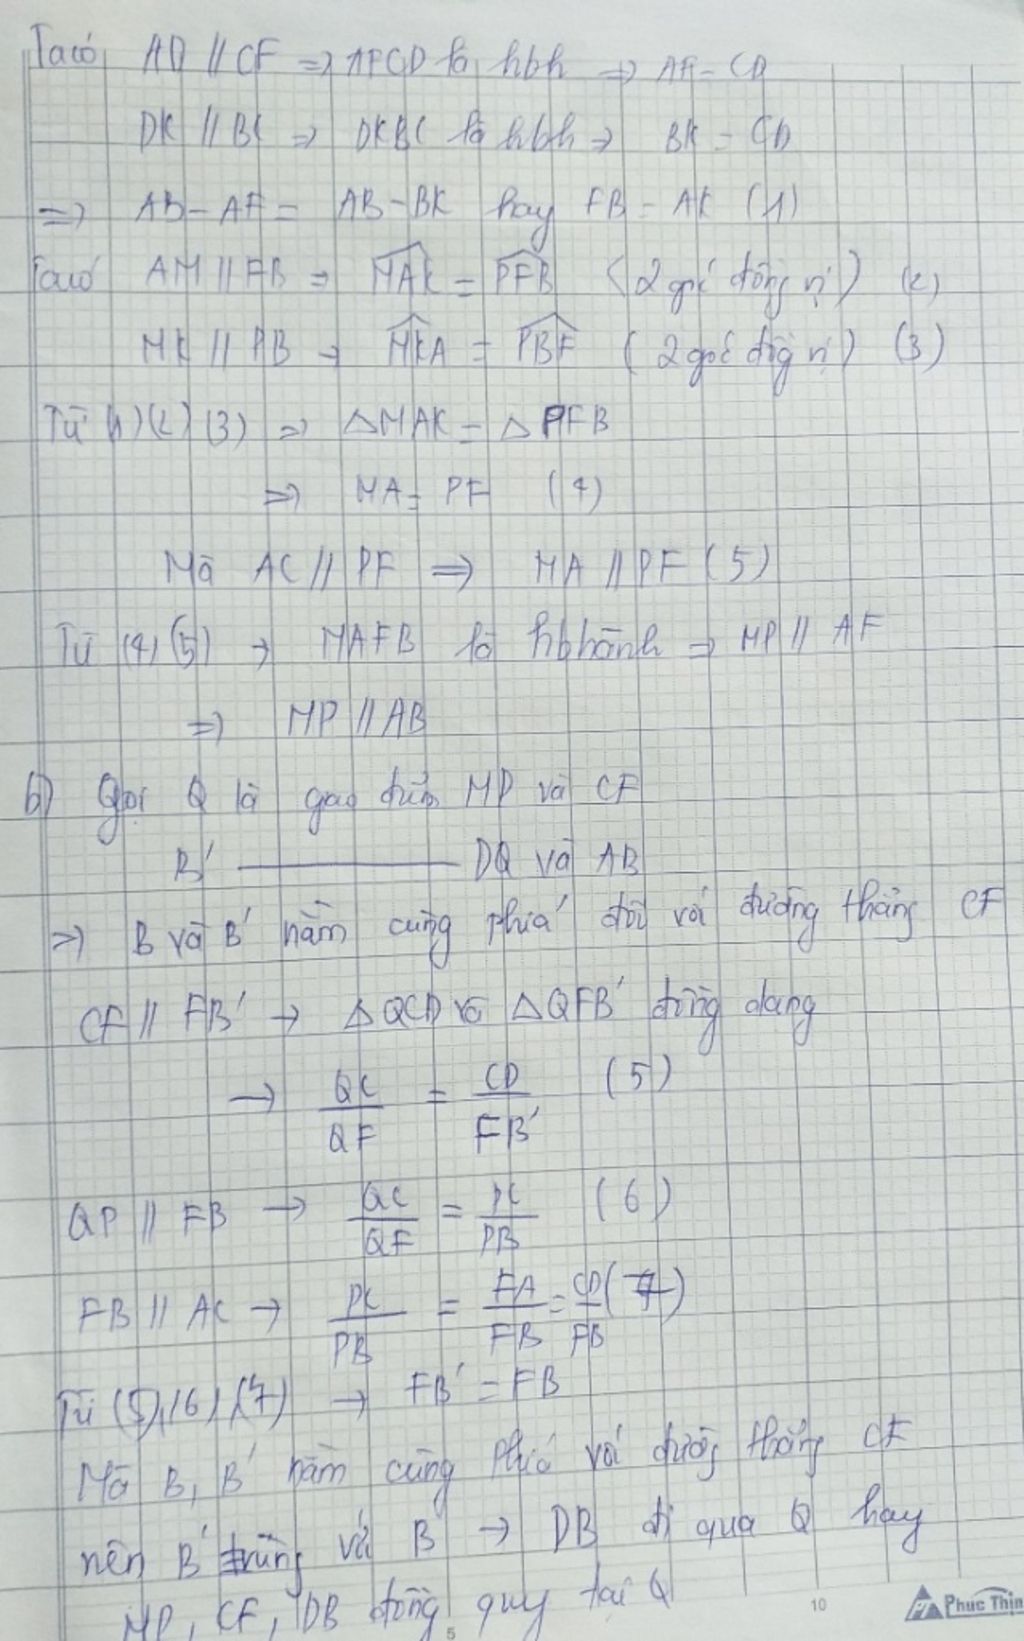 Ta có AD // CF => AFCD là hbh => AF = CD
DK // BC => DKBC là hbh => BK = CD
=> AB - AF = AB - BK hay FB = AK (1)
Ta có AM // FB => MAK = PFB (2 góc đồng vị) (2)
MK // PB → MKA = PBF (2 góc đồng vị) (3)
Từ (1) (2) (3) => △MAK = △PFB
=> MA = PF (4)
Mà AC // PF => MA // PF (5)
Từ (4) (5) → MAFB là hbhành => MP // AF
=> MP // AB
b) Gọi Q là giao điểm MP và CF
B' ——— DQ và AB
=> B và B' nằm cùng phía đối với đường thẳng CF
CF // FB' → △QCD và △QFB' đồng dạng
→ QC/QF = CD/FB' (5)
QP // FB → QC/QF = PC/PB (6)
FB // AC → PC/PB = FA/FB = CD/FB (7)
Từ (5), (6), (7) → FB' = FB
Mà B, B' nằm cùng phía với đường thẳng CF
nên B' trùng với B → DB đi qua Q hay
MP, CF, DB đồng quy tại Q
5 10 Phuc Thin